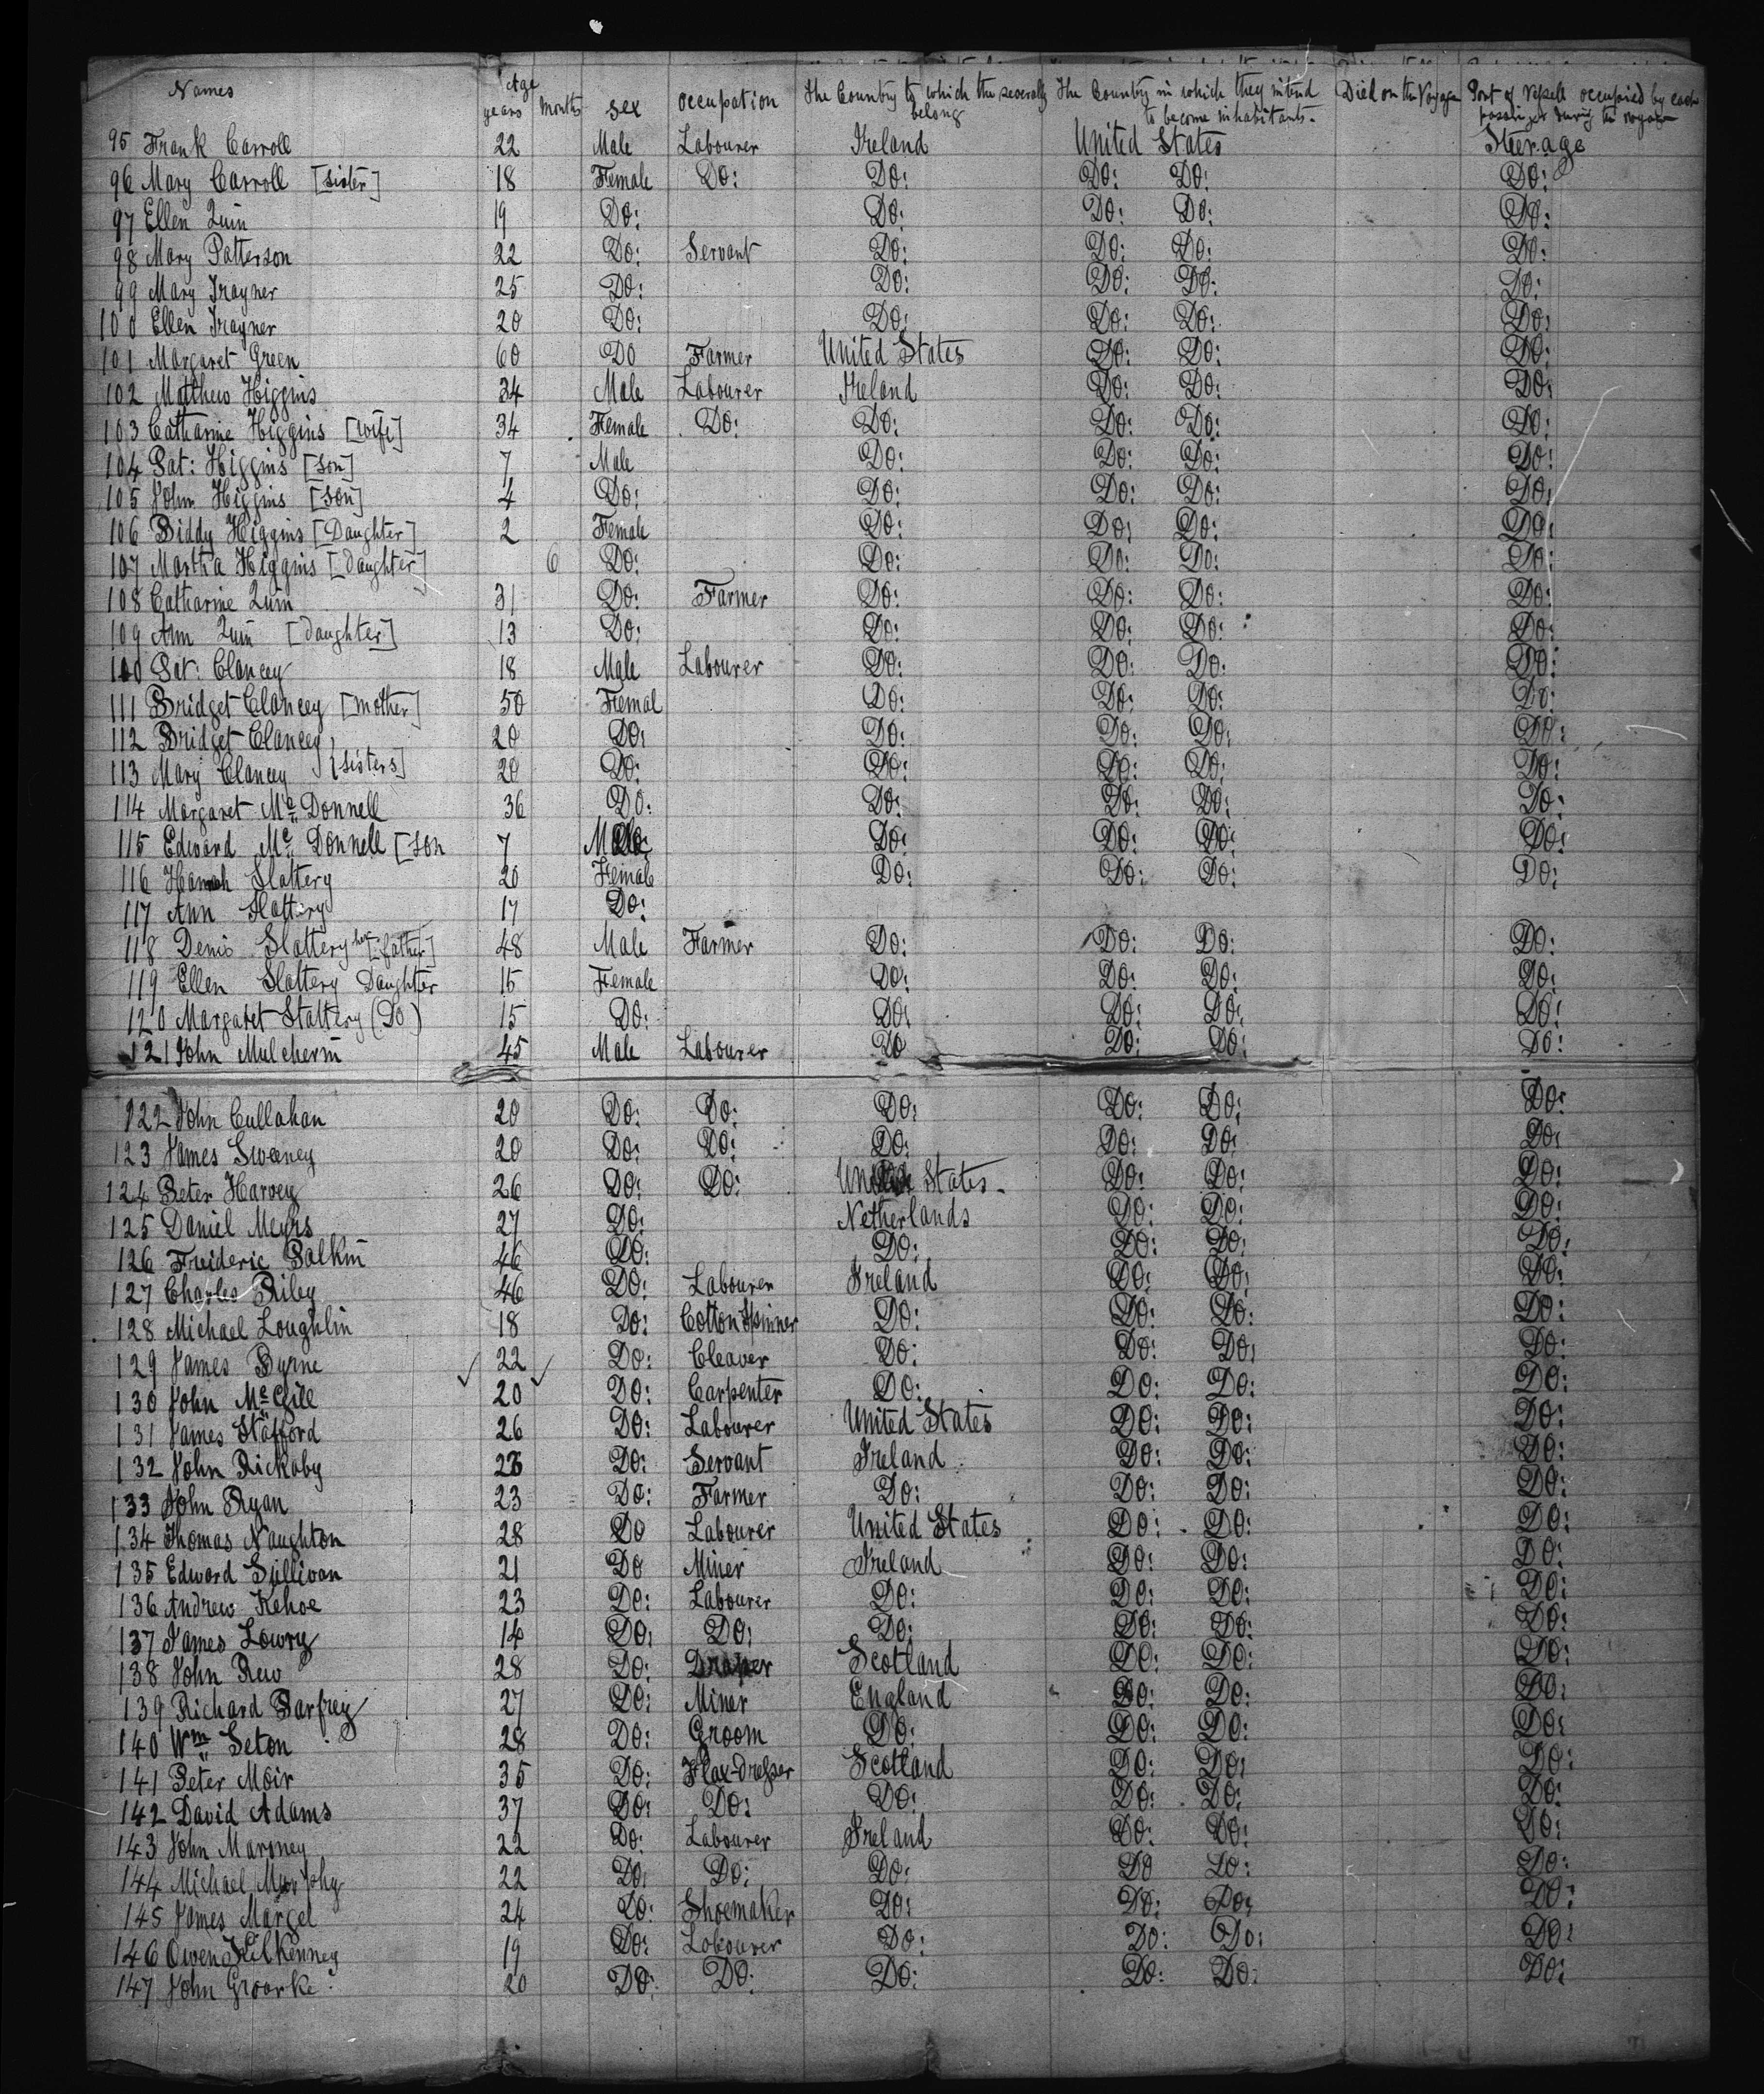 Names Age years Months Sex Occupation The Country to which they severally belong The Country in which they intend to become inhabitants. Died on the Voyage Part of Vessel occupied by each passenger during the voyage
95 Frank Carroll 22 Male Labourer Ireland United States Steerage
96 Mary Carroll [Sister] 18 Female Do: Do: Do: Do: Do:
97 Ellen Quin 19 Do: Do: Do: Do: Do:
98 Mary Patterson 22 Do: Servant Do: Do: Do: Do:
99 Mary Trayner 25 Do: Do: Do: Do: Do:
100 Ellen Trayner 20 Do: Do: Do: Do: Do:
101 Margaret Green 60 Do Farmer United States Do: Do: Do:
102 Mathew Higgins 34 Male Labourer Ireland Do: Do: Do:
103 Catharine Higgins [wife] 34 Female Do: Do: Do: Do: Do:
104 Pat: Higgins [Son] 7 Male Do: Do: Do: Do:
105 John Higgins [Son] 4 Do: Do: Do: Do: Do:
106 Biddy Higgins [Daughter] 2 Female Do: Do: Do: Do:
107 Martha Higgins [Daughter] 6 Do: Do: Do: Do: Do:
108 Catharine Quin 31 Do: Farmer Do: Do: Do: Do:
109 Ann Quin [Daughter] 13 Do: Do: Do: Do: Do:
110 Pat: Clancey 18 Male Labourer Do: Do: Do: Do:
111 Bridget Clancey [Mother] 50 Femal Do: Do: Do: Do:
112 Bridget Clancey 20 Do: Do: Do: Do: Do:
113 Mary Clancey [Sisters] 20 Do: Do: Do: Do: Do:
114 Margaret Mc Donnell 36 Do: Do: Do: Do: Do:
115 Edward Mc Donnell [Son 7 Male Do: Do: Do: Do:
116 Hannah Slattery 20 Female Do: Do: Do: Do:
117 Ann Slattery 17 Do:
118 Denis Slattery her [father] 48 Male Farmer Do: Do: Do: Do:
119 Ellen Slattery Daughter 15 Female Do: Do: Do: Do:
120 Margaret Slattery (Do) 15 Do: Do: Do: Do: Do:
121 John Mulcherin 45 Male Labourer Do Do: Do: Do:
122 John Cullahan 20 Do: Do: Do: Do: Do: Do:
123 James Sweeney 20 Do: Do: Do: Do: Do: Do:
124 Peter Harvey 26 Do: Do: United States. Do: Do: Do:
125 Daniel Meyrs 27 Do: Netherlands Do: Do: Do:
126 Frederic Balkin 46 Do: Do: Do: Do: Do:
127 Charles Riley 46 Do: Labourer Ireland Do: Do: Do:
128 Michael Loughlin 18 Do: Cotton Spinner Do: Do: Do: Do:
129 James Byrne 22 Do: Cleaver Do: Do: Do: Do:
130 John McGill 20 Do: Carpenter Do: Do: Do: Do:
131 James Stafford 26 Do: Labourer United States Do: Do: Do:
132 John Rickaby 23 Do: Servant Ireland Do: Do: Do:
133 John Ryan 23 Do: Farmer Do: Do: Do: Do:
134 Thomas Naughton 28 Do Labourer United States Do: Do: Do:
135 Edward Sullivan 21 Do Miner Ireland Do: Do: Do:
136 Andrew Kehoe 23 Do: Labourer Do: Do: Do: Do:
137 James Lowry 14 Do: Do: Do: Do: Do: Do:
138 John Rew 28 Do: Draper Scotland Do: Do: Do:
139 Richard Parfrey 27 Do: Miner England Do: Do: Do:
140 Wm Seton 28 Do: Groom Do: Do: Do: Do:
141 Peter Moir 35 Do: Flax-Dresser Scotland Do: Do: Do:
142 David Adams 37 Do: Do: Do: Do: Do: Do:
143 John Maroney 22 Do: Labourer Ireland Do: Do: Do:
144 Michael Murphy 22 Do: Do: Do: Do Do: Do:
145 James Margel 24 Do: Shoemaker Do: Do: Do: Do:
146 Owen Kilkenney 19 Do: Labourer Do: Do: Do: Do:
147 John Groarke 20 Do: Do: Do: Do: Do: Do: